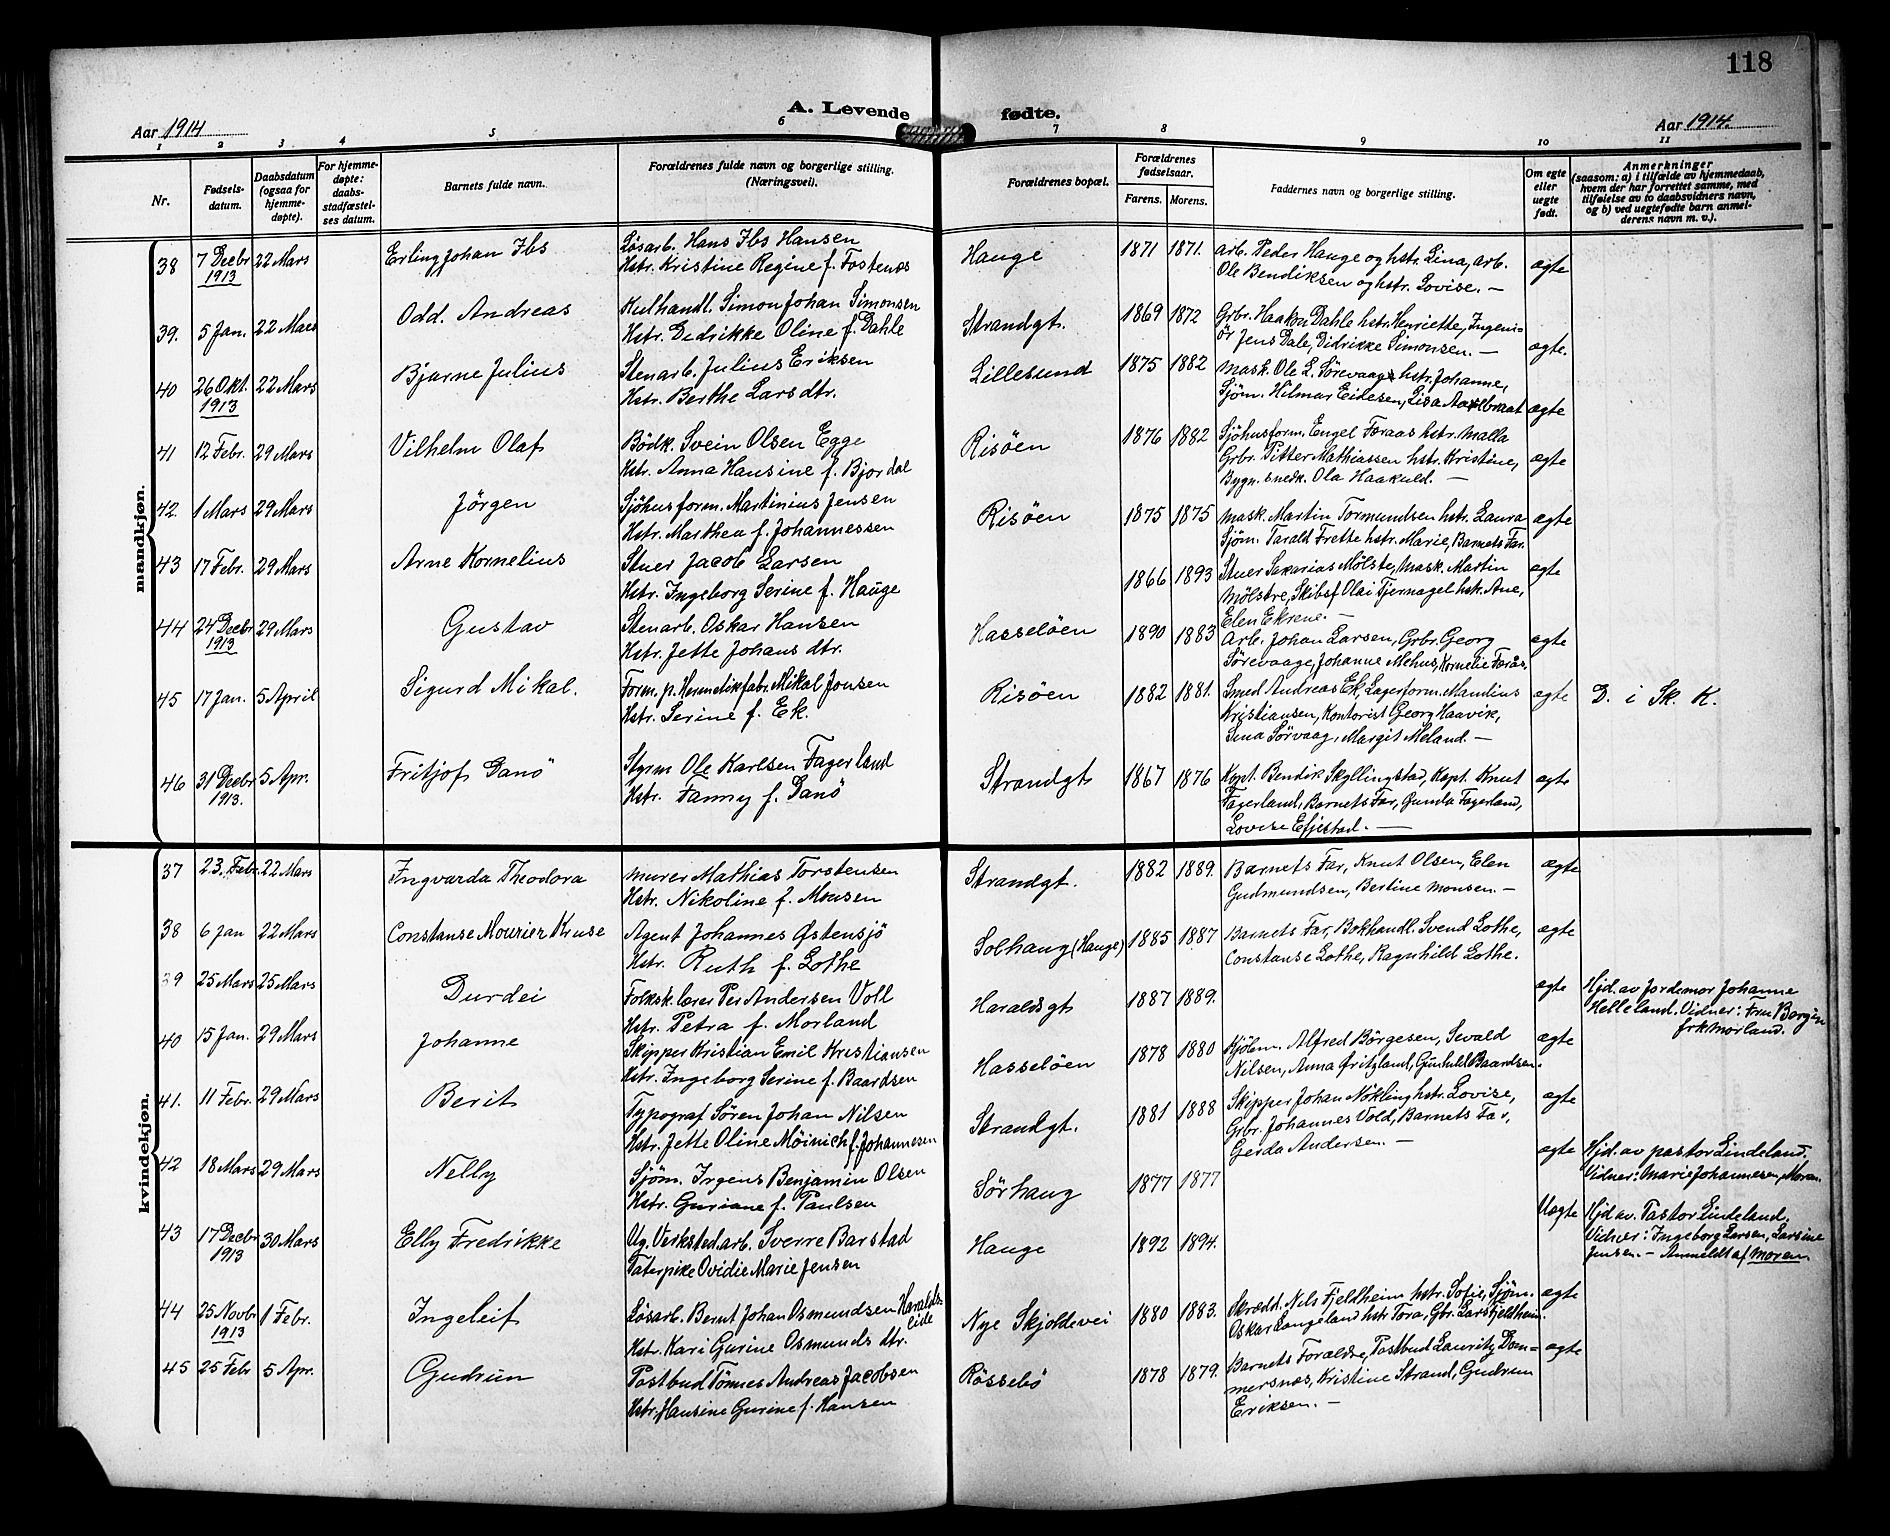 118
A. Levende fødte.
Aar 1914
Aar 1914.
1 2 3 4 5 6 7 8 9 10 11
Nr.
Fødsels-
datum.
Daabsdatum
(ogsaa for
hjemme-
døpte).
For hjemme-
døpte:
daabs-
stadfæstel-
ses datum.
Barnets fulde navn.
Forældrenes fulde navn og borgerlige stilling.
(Næringsvei).
Forældrenes bopæl.
Forældrenes
fødselsaar.
Farens. Morens.
Faddernes navn og borgerlige stilling.
Om egte
eller
uegte
født.
Anmerkninger
(saasom: a) i tilfælde av hjemmedaab,
hvem der har forrettet samme, med
tilføielse av to daabsvidners navn,
og b) ved uegtefødte barn anmel-
derens navn m. v.).
mandkjøn.
38 7 Decbr 1913 22 Mars Erling Johan Ibs
Løsarb. Hans Ibs Hansen
Hstr. Kristine Regine f. Tostenæs
Hauge 1871 1871.
Arb. Peder Hauge og hstr. Lina, arb.
Ole Bendiksen og hstr. Lovise. —
ægte
39. 5 Jan. 22 Mars Odd. Andreas
Kulhandl. Simon Johan Simonsen
Hstr. Didrikke Oline f. Dahle
Strandgt. 1869 1872
Grbr. Haakon Dahle hstr. Henriette, Ingeni-
ör Jens Dale, Didrikke Simonsen. —
ægte.
40 26 Okt. 1913 22 Mars Bjarne Julius
Stenarb. Julius Eriksen
Hstr. Berthe Lars dtr.
Lillesund 1875 1882
Mask. Ole L. Sørevaag hstr. Johanne,
Sjöm. Hilmar Eidesen, Lisa
ægte
41 12 Febr. 29 Mars Vilhelm Olaf
Bödk. Svein Olsen Egge
Hstr. Anna Hansine f. Bjordal
Risöen 1876 1882
Sjöhusform. Engel Færaas hstr. Malla
Grbr. Pitter Mathiassen hstr. Kristine,
Bygn. snedk. Ola Haakuld. —
ægte
42. 1 Mars 29 Mars Jörgen
Sjöhusform. Martinius Jensen
Hstr. Marthea f. Johannessen
Risöen 1875 1875
Mask. Martin Tormundsen hstr. Laura
Sjöm. Tarald Frette hstr. Marie, Barnets Far.
ægte
43 17 Febr. 29 Mars Arne Kornelius
Stuer Jacob Larsen
Hstr. Ingeborg Serine f. Hauge
1866 1893
Stuer Sakarias Mölstre, Mask. Martin
Mölstre, Skibsf. Olai Tjernagel hstr. Ane,
Elen Ekrene. —
ægte
44 24 Decbr 1913 29 Mars Gustav
Stenarb. Oskar Hansen
Hstr. Jette Johans dtr.
Hasselöen 1890 1883
Arb. Johan Larsen, Grbr. Georg
Sörevaage, Johanne Mehus, Kornelie Færås.
ægte
45 17 Jan. 5 April Sigurd Mikal.
Form. p. Hermetikfabr. Mikal Jonsen
Hstr. Serine f. Ek.
Risöen 1882 1881.
Smed Andreas Ek, Lagerform. Mandius
Kristiansen, Kontorist Georg Haavik,
Sina Sörvaag, Margit Meland. —
ægte D. i Sk. K.
46 31 Decbr 1913. 5 Apr. Fritjof Danö
Styrm Ole Karlsen Fagerland
Hstr. Fanny f. Danö
Strandgt 1867 1876
Kapt. Bendik Skyllingstad, Kapt. Knut
Fagerland, Barnets Far, Gunda Fagerland,
Lovise Efjestad. —
ægte
kvindekjøn.
37 23. Febr. 22 Mars Ingvarda Theodora
Murer Mathias Torstensen
Hstr. Nikoline f. Monsen
Strandgt. 1882 1889.
Barnets Far, Knut Olsen, Elen
Gudmundsen, Bertine Monsen. —
ægte
38 6 Jan 22 Mars Constanse Mourier Kruse
Agent Johannes Østensjö
Hstr. Ruth f. Lothe
Solhaug (Hauge) 1885 1887
Barnets Far, Bokhandl. Svend Lothe,
Constanse Lothe, Ragnhild Lothe.
ægte
39 25 Mars 25 Mars Durdei
Folksk. lærer Per Andersen Voll
Hstr. Petra f. Morland
Haraldsgt 1887 1889.
ægte
Hjd. av Jordemor Johanne
Helleland. Vidner: Fru Borgën
frk Morland.
40 15 Jan. 29 Mars Johanne
Skipper Kristian Emil Kristiansen
Hstr. Ingeborg Serine f. Baardsen
Hasselöen 1878 1880
Kjölm. Alfred Börgesen, Sevald
Nilsen, Anna Øritzland, Gunhild Baardsen.
ægte
41. 11 Febr. 29 Mars Berit
Typograf Sören Johan Nilsen
Hstr. Jette Oline Möinich f. Johannesen
Strandgt. 1881 1888
Skipper Johan Nökling hstr. Lovise,
Grbr. Johannes Vold, Barnets Far,
Gerda Andersen. —
ægte
42 18 Mars 29 Mars Nelly
Sjöm. Irgens Benjamin Olsen
Hstr. Guriane f. Paulsen
Sörhaug 1877 1877
ægte
Hjd. av pastor Lindeland.
Vidner: Marie Johannesen, Moren.
43 17 Decbr 1913 30 Mars Elly Fredrikke
Ug. Verksted.arb. Sverre Barstad
Taterpike Ovidie Marie Jensen
Hauge 1892 1894.
Uægte
Hjd av. Pastor Lindeland.
Vidner: Ingeborg Larsen, Larsine
Jensen. — Anmeldt af Moren
44 25 Novbr 1913 1 Febr. Ingeleif
Løsarb. Bernt Johan Osmundsen Haralds-
eide
Hstr. Kari Gurine Osmunds dtr.
Nye Skjoldevei 1880 1883.
Skrædd. Nils Fjeldheim hstr. Sofie, Sjöm.
Oskar Langeland hstr Tora, Gbr. Lars Fjeldheim.
ægte
45 25 Febr 5 Apr. Gudrun
Postbud Tönnes Andreas Jacobsen
Hstr. Hansine Gurine f. Hansen
Rössebö 1878 1879.
Barnets Forældre, Postbud Lauritz Dom-
mersnæs, Kristine Strand, Gudrun
Eriksen. —
ægte